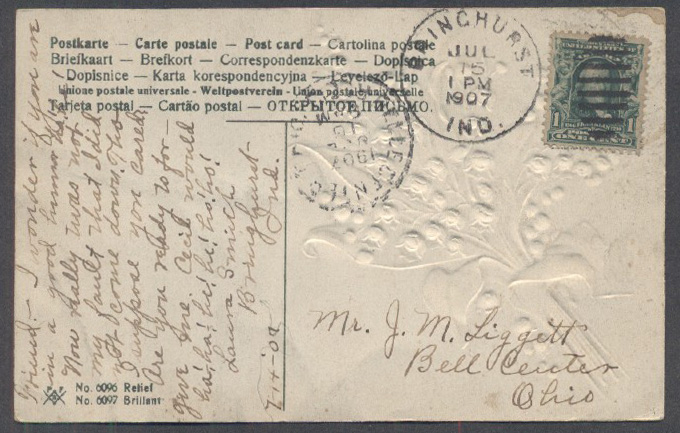 Postkarte — Carte postale — Post card — Cartolina postale
Briefkaart — Brefkort — Correspondenzkarte — Dopisnica
Dopisnice — Karta korespondencyjna — Levelező-Lap
Unione postale universale - Weltpostverein - Union postale universelle
Tarjeta postal — Cartão postal — ОТКРЫТОЕ ПИСЬМО.
BRINGHURST
JUL
15
1 PM
1907
IND.
1
1
Friend - I wonder if you are
in a good humor
Now Really twas not
my fault that I did
not come down. Tho
I suppose you cared.
Are you ready to for-
give me. Cecil would
ha! ha! hi! hi! ho! ho!
Laura Smith
Bringhurst-
Ind.
7-14-07
Mr. J. M. Liggett
Bell Center
Ohio.
No. 6096 Relief
No. 6097 Brillant